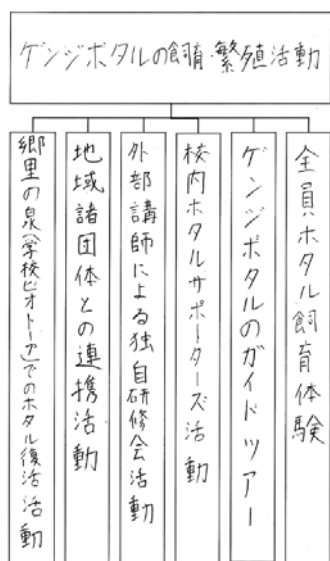 ゲンジボタルの飼育・繁殖活動
全員ホタル飼育体験
ゲンジボタルのガイドツアー
校内ホタルサポーターズ活動
外部講師による独自研修会活動
地域諸団体との連携活動
郷里の泉(学校ビオトープ)でのホタル復活活動